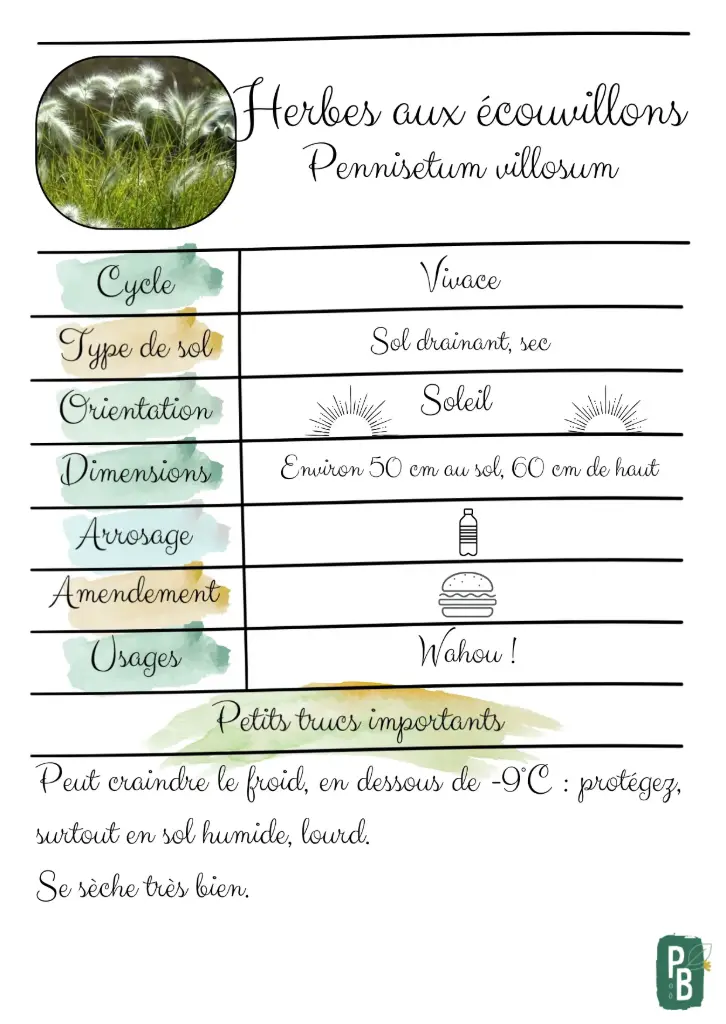 Herbes aux écouvillons
Pennisetum villosum
Cycle
Vivace
Type de sol
Sol drainant, sec
Orientation
Soleil
Dimensions
Environ 50 cm au sol, 60 cm de haut
Arrosage
Amendement
Usages
Wahou !
Petits trucs importants
Peut craindre le froid, en dessous de -9°C : protégez,
surtout en sol humide, lourd.
Se sèche très bien.
P
B